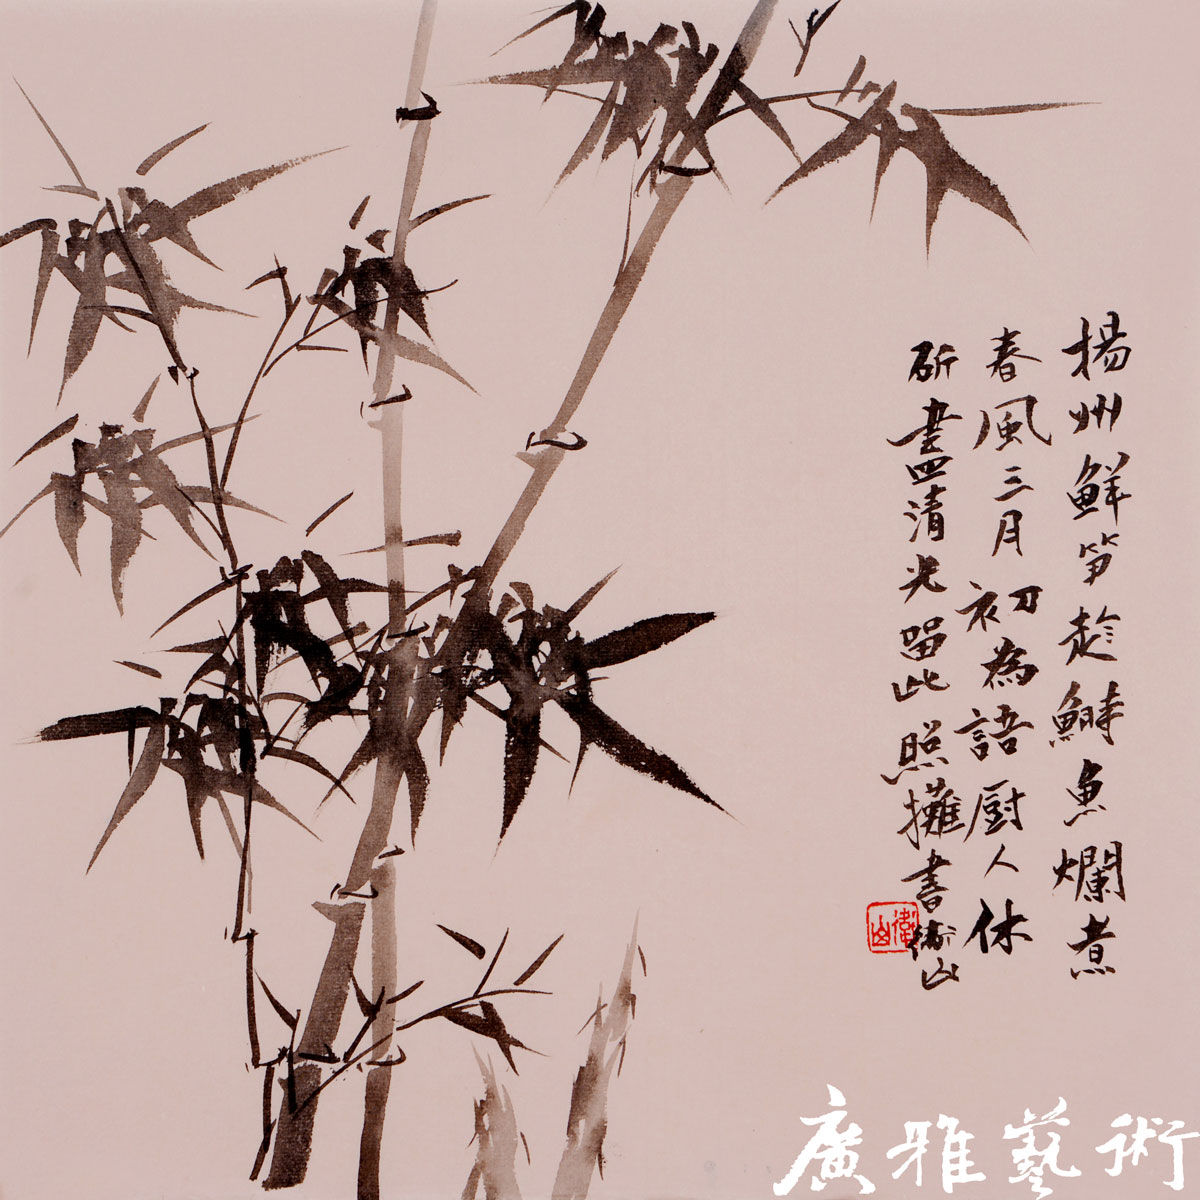 揚州鮮笋趁鰣魚爛煮
春風三月初為語厨人休
斫盡四清光留此照攤書衛山
衛山
廣雅藝術